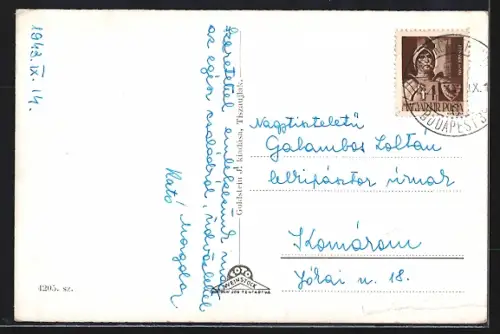 1943. IX. 14.
Szeretettel emlékezünk meg
az egész családról, üdvözlettel
Kató, Margola
4205. sz.
Goldstein J. kiadása, Tiszaujlak.
WEINSTOCK
MAGYAR KIR. POSTA
BUDAPEST
IX.1
Nagytiszteletű
Galambos Zoltán
lelkipásztor úrnak
Komárom
Jókai u. 18.